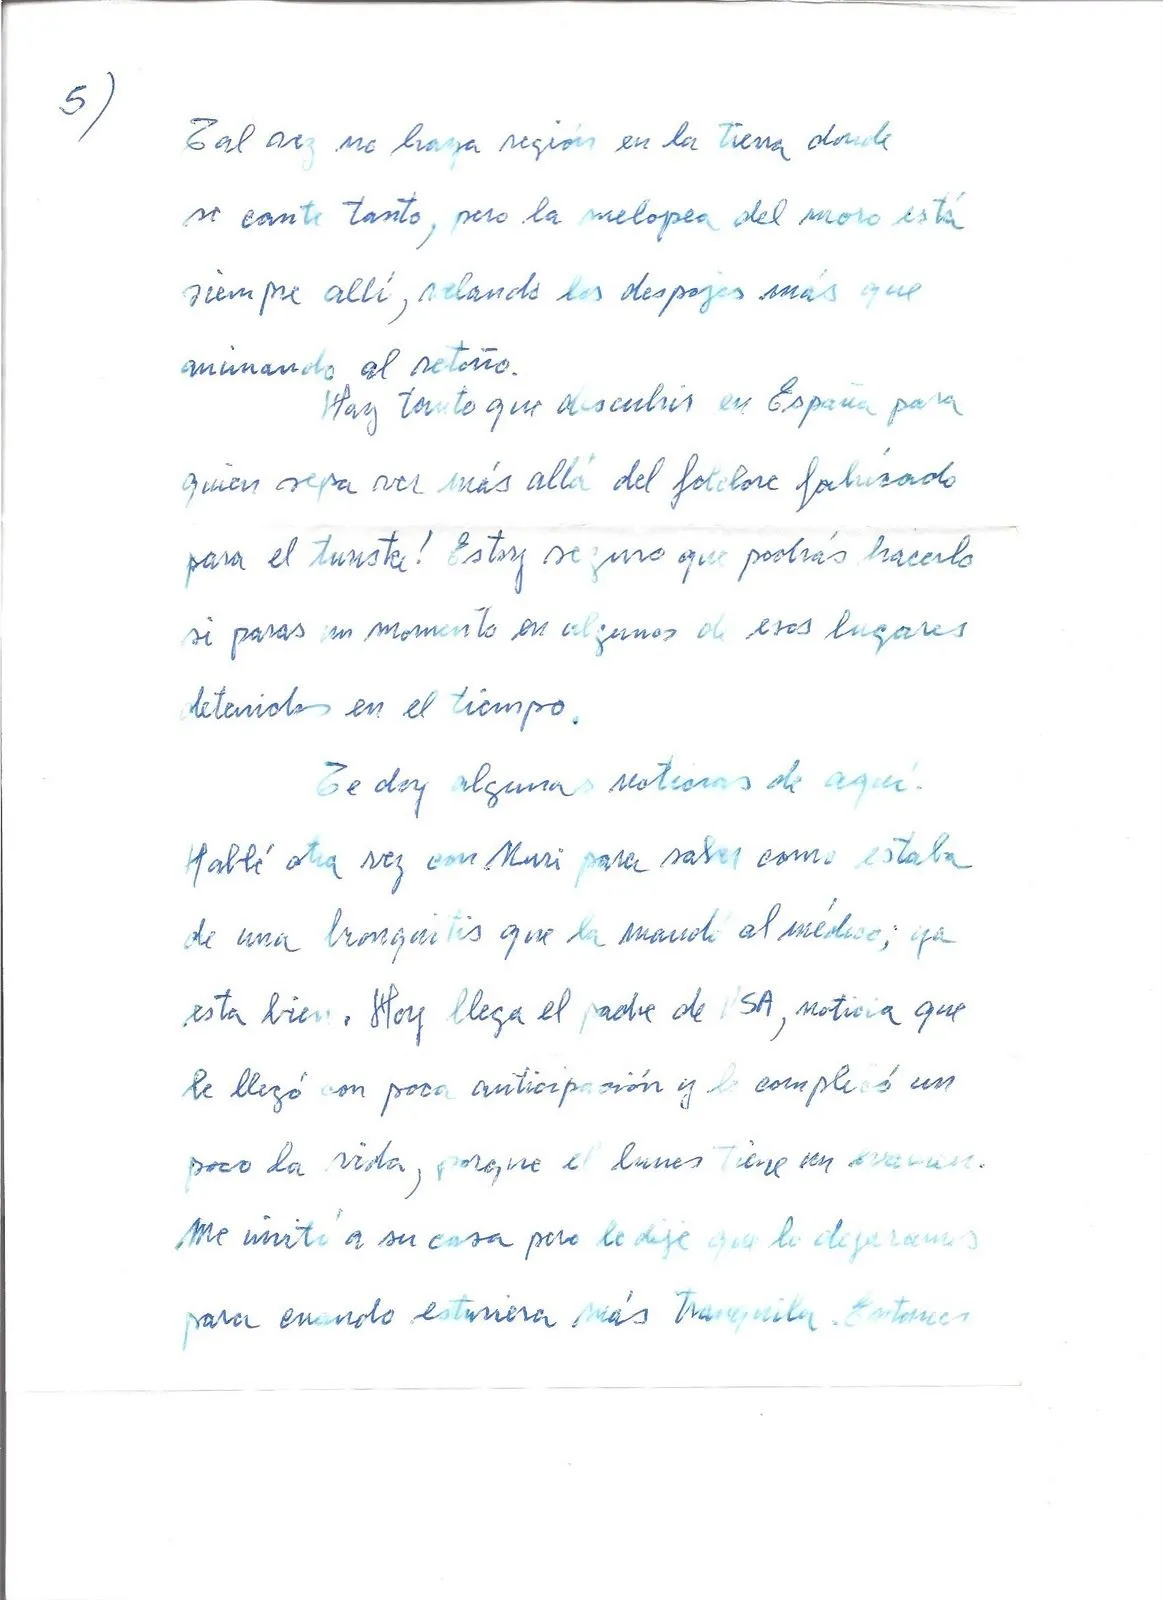 5)
Tal vez no haya región en la tierra donde
se cante tanto, pero la melopea del moro está
siempre allí, velando los despojos más que
animando al retoño.
Hay tanto que descubrir en España para
quien sepa ver más allá del folclore fabricado
para el turista! Estoy seguro que podrás hacerlo
si paras un momento en algunos de esos lugares
detenidos en el tiempo.
Te doy algunas noticias de aquí.
Hablé otra vez con Muri para saber como estaba
de una bronquitis que la mandó al médico; ya
esta bien. Hoy llega el padre de USA, noticia que
le llegó con poca anticipación y le complicó un
poco la vida, porque el lunes tiene un examen.
Me invitó a su casa pero le dije que lo dejaramos
para cuando estuviera más tranquila. Entonces